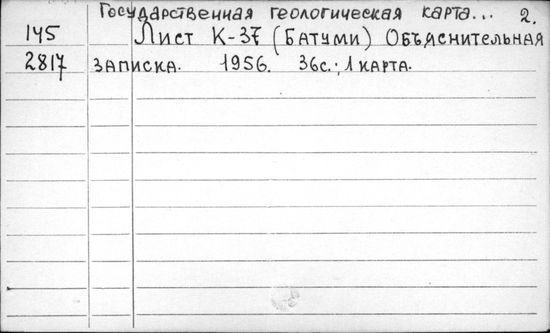 Государственная геологическая карта... 2.
145 Лист К-37 (Батуми) Объяснительная
2817 записка. 1956. 36с.; 1 карта.